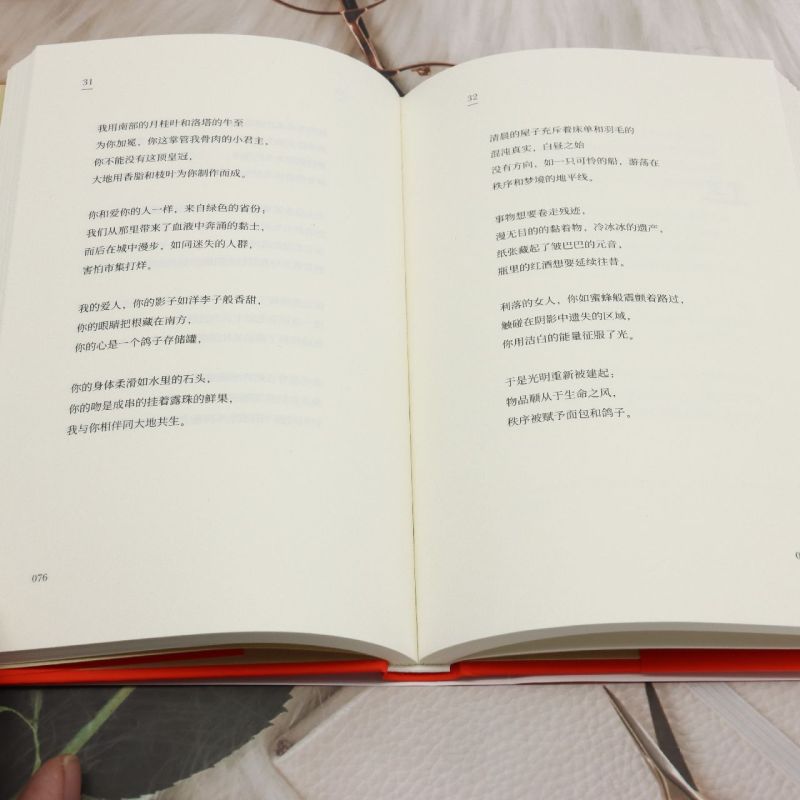 31
我用南部的月桂叶和洛塔的牛至
为你加冕，你这掌管我骨肉的小君主，
你不能没有这顶皇冠，
大地用香脂和枝叶为你制作而成。
你和爱你的人一样，来自绿色的省份；
我们从那里带来了血液中奔涌的黏土，
而后在城中漫步，如同迷失的人群，
害怕市集打烊。
我的爱人，你的影子如洋李子般香甜，
你的眼睛把根藏在南方，
你的心是一个鸽子存储罐，
你的身体柔滑如水里的石头，
你的吻是成串的挂着露珠的鲜果，
我与你相伴同大地共生。
076
32
清晨的屋子充斥着床单和羽毛的
混沌真实，白昼之始
没有方向，如一只可怜的船，游荡在
秩序和梦境的地平线。
事物想要卷走残迹，
漫无目的的黏着物，冷冰冰的遗产，
纸张藏起了皱巴巴的元音，
瓶里的红酒想要延续往昔。
利落的女人，你如蜜蜂般震颤着路过，
触碰在阴影中遗失的区域，
你用洁白的能量征服了光。
于是光明重新被建起；
物品顺从于生命之风，
秩序被赋予面包和鸽子。